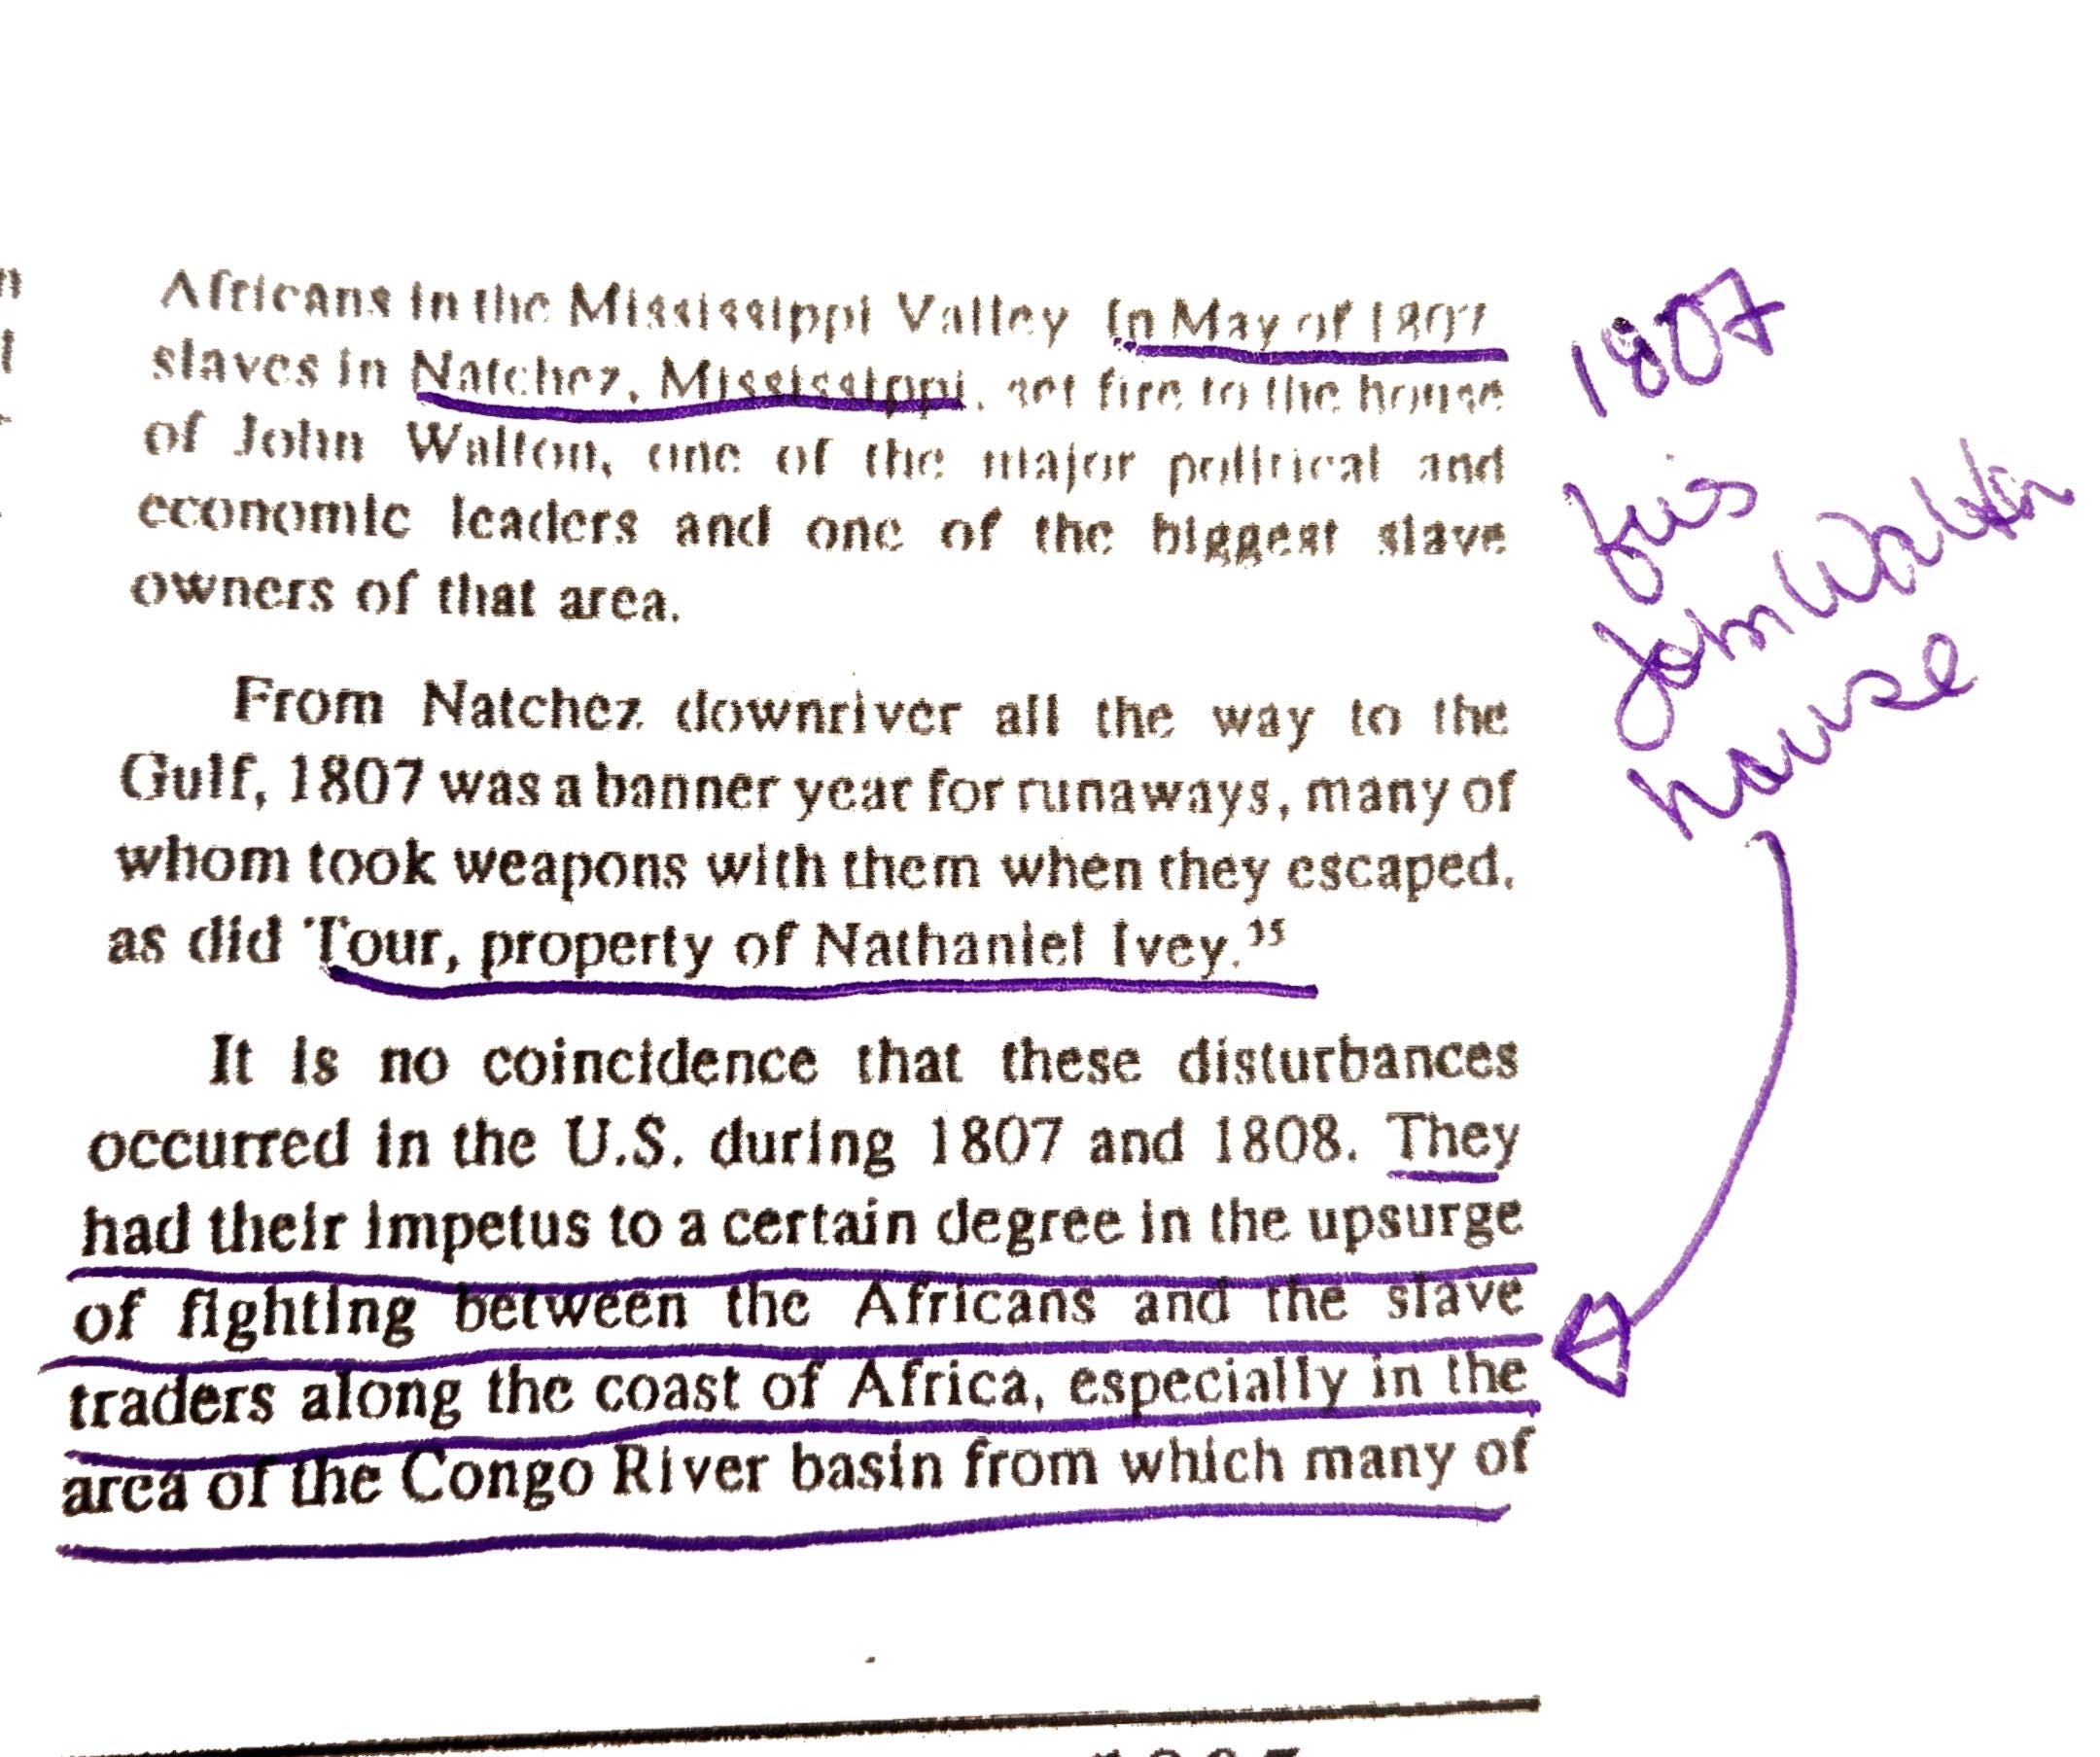 Africans in the Mississippi Valley In May of 1807
slaves in Natchez, Mississippi, set fire to the house
of John Walton, one of the major political and
economic leaders and one of the biggest slave
owners of that area.
From Natchez downriver all the way to the
Gulf, 1807 was a banner year for runaways, many of
whom took weapons with them when they escaped,
as did Tour, property of Nathaniel Ivey.³⁵
It is no coincidence that these disturbances
occurred in the U.S. during 1807 and 1808. They
had their impetus to a certain degree in the upsurge
of fighting between the Africans and the slave
traders along the coast of Africa, especially in the
area of the Congo River basin from which many of
1807
John Walton
house